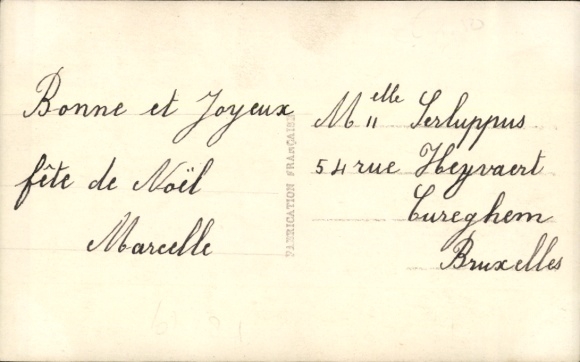 Bonne et Joyeux
fête de Noël
Marcelle
FABRICATION FRANÇAISE
Melle Serluppus
54 rue Heyvaert
Cureghem
Bruxelles